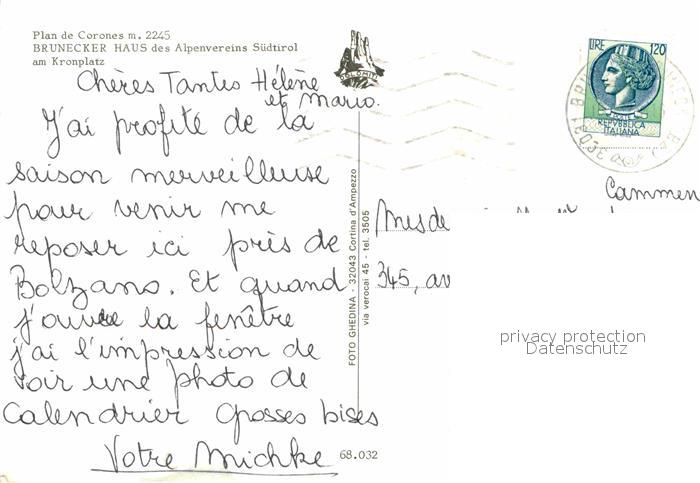 Plan de Corones m. 2245
BRUNECKER HAUS des Alpenvereins Südtirol
am Kronplatz
DOLOMITI
Chères Tantes Hélène
et Mario.
J'ai profité de la
saison merveilleuse
pour venir me
reposer ici près de
Bolzano. Et quand
j'ouvre la fenêtre
j'ai l'impression de
voir une photo de
Calendrier Grosses bises
Votre Michke
68.032
FOTO GHEDINA - 32043 Cortina d'Ampezzo
via verocai 45 - tel. 3505
LIRE 120
POSTE
REPVBBLICA
ITALIANA
Cammen
Mesde
345, av
privacy protection
Datenschutz